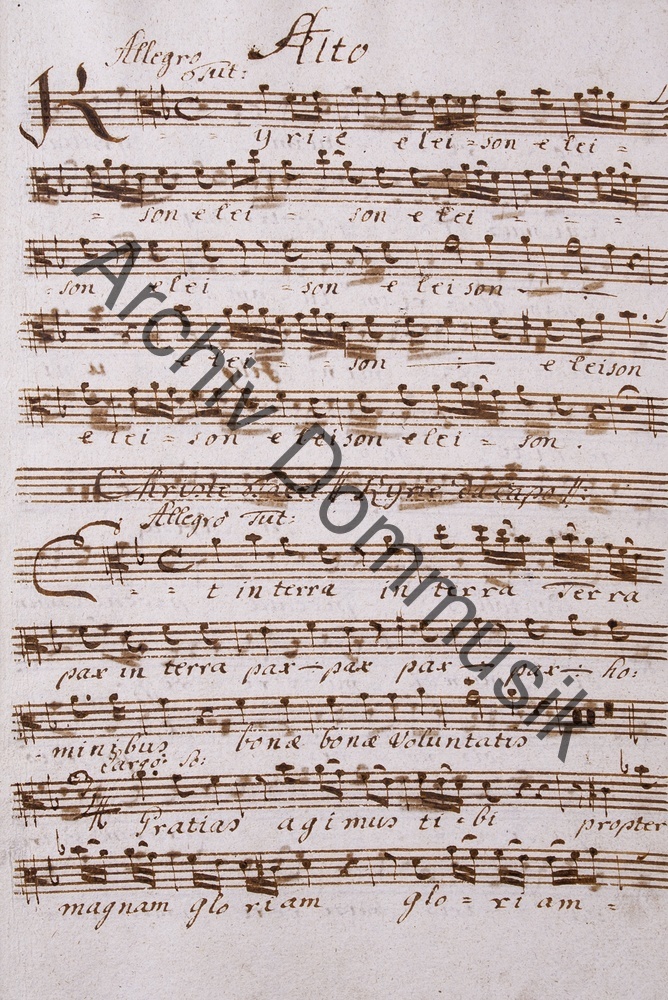 Alto
Allegro
Tut:
K yri-e e lei = son e lei =
= son e lei = son e lei = = =
son e lei = son e lei son
e lei = = son e leison
e lei = son e leison e lei = son.
Christe tacet // Kyrie da capo //:
Allegro Tut:
E = = t in terra in terra Terra
pax in terra pax - pax pax pax ho:
minibus bonæ bonæ Voluntatis
Largo: So:
Gratias agimus ti = bi propter
magnam glo riam glo = ri am =
Archiv Dommusik